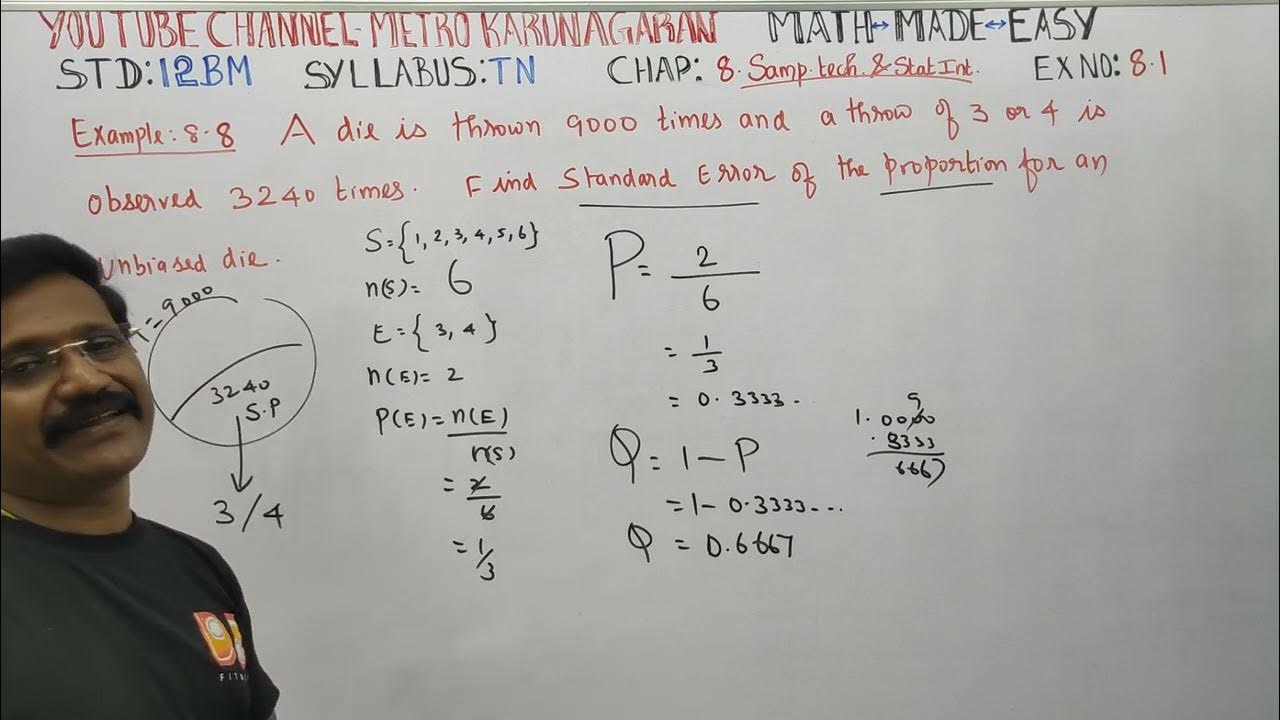 YOUTUBE CHANNEL-METRO KARUNAGARAN MATH↔MADE↔EASY
STD:12BM SYLLABUS:TN CHAP: 8. Samp. tech. & Stat Int. EX NO: 8.1
Example: 8.8 A die is thrown 9000 times and a throw of 3 or 4 is
observed 3240 times. Find Standard Error of the proportion for an
unbiased die.
= 9000
3240
S.P
3/4
S={1, 2, 3, 4, 5, 6}
n(s)= 6
E = { 3, 4 }
n(E)= 2
P(E)= n(E)
n(s)
= 2
6
= 1/3
P= 2
6
= 1
3
= 0.3333..
Q = 1 - P
= 1 - 0.3333...
Q = 0.6667
9
1.0000
.3333
6667
FIT